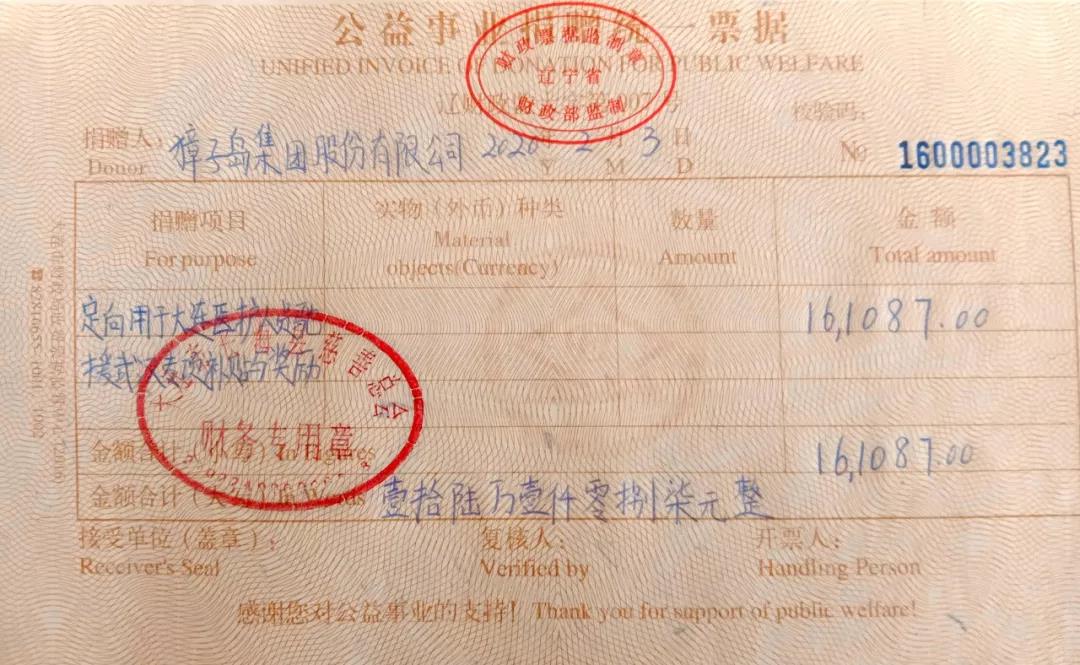 公益事业捐赠统一票据
UNIFIED INVOICE OF DONATION FOR PUBLIC WELFARE
财政票据监制章
辽宁省
财政部监制
校验码：
捐赠人：獐子岛集团股份有限公司 2020 年 2 月 3 日
Donor Y M D
№ 1600003823
捐赠项目 实物（外币）种类 数量 金额
For purpose Material objects(Currency) Amount Total amount
定向用于大连医护人员
16,1087.00
援武汉专项补贴与奖励
慈善总会
财务专用章
金额合计 16,1087.00
金额合计 壹拾陆万壹仟零捌拾柒元整
接受单位（盖章）： 复核人： 开票人：
Receiver's Seal Verified by Handling Person
感谢您对公益事业的支持！ Thank you for support of public welfare!